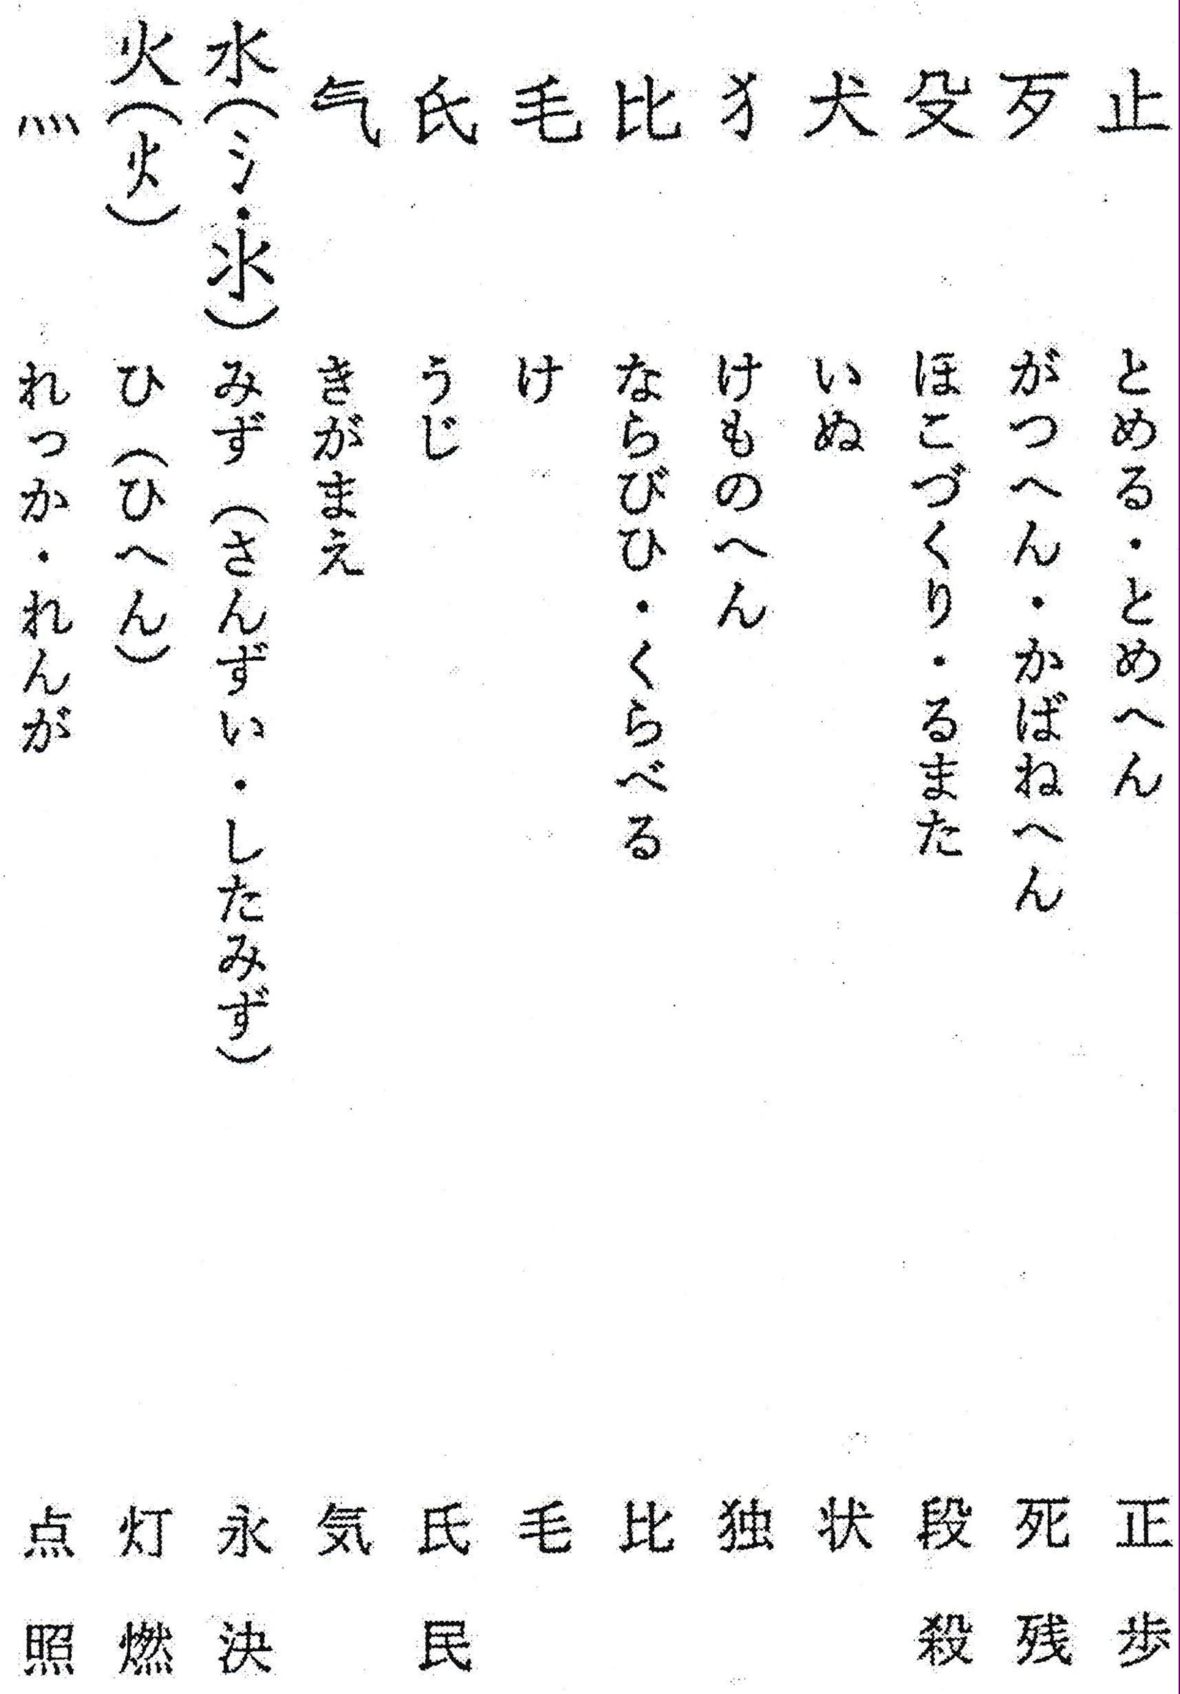 止 とめる・とめへん 正 歩
歹 がつへん・かばねへん 死 残
殳 ほこづくり・るまた 段 殺
犬 いぬ 状
犭 けものへん 独
比 ならびひ・くらべる 比
毛 け 毛
氏 うじ 氏 民
气 きがまえ 気
水(氵・氺) みず(さんずい・したみず) 永 決
火(火) ひ(ひへん) 灯 燃
灬 れっか・れんが 点 照